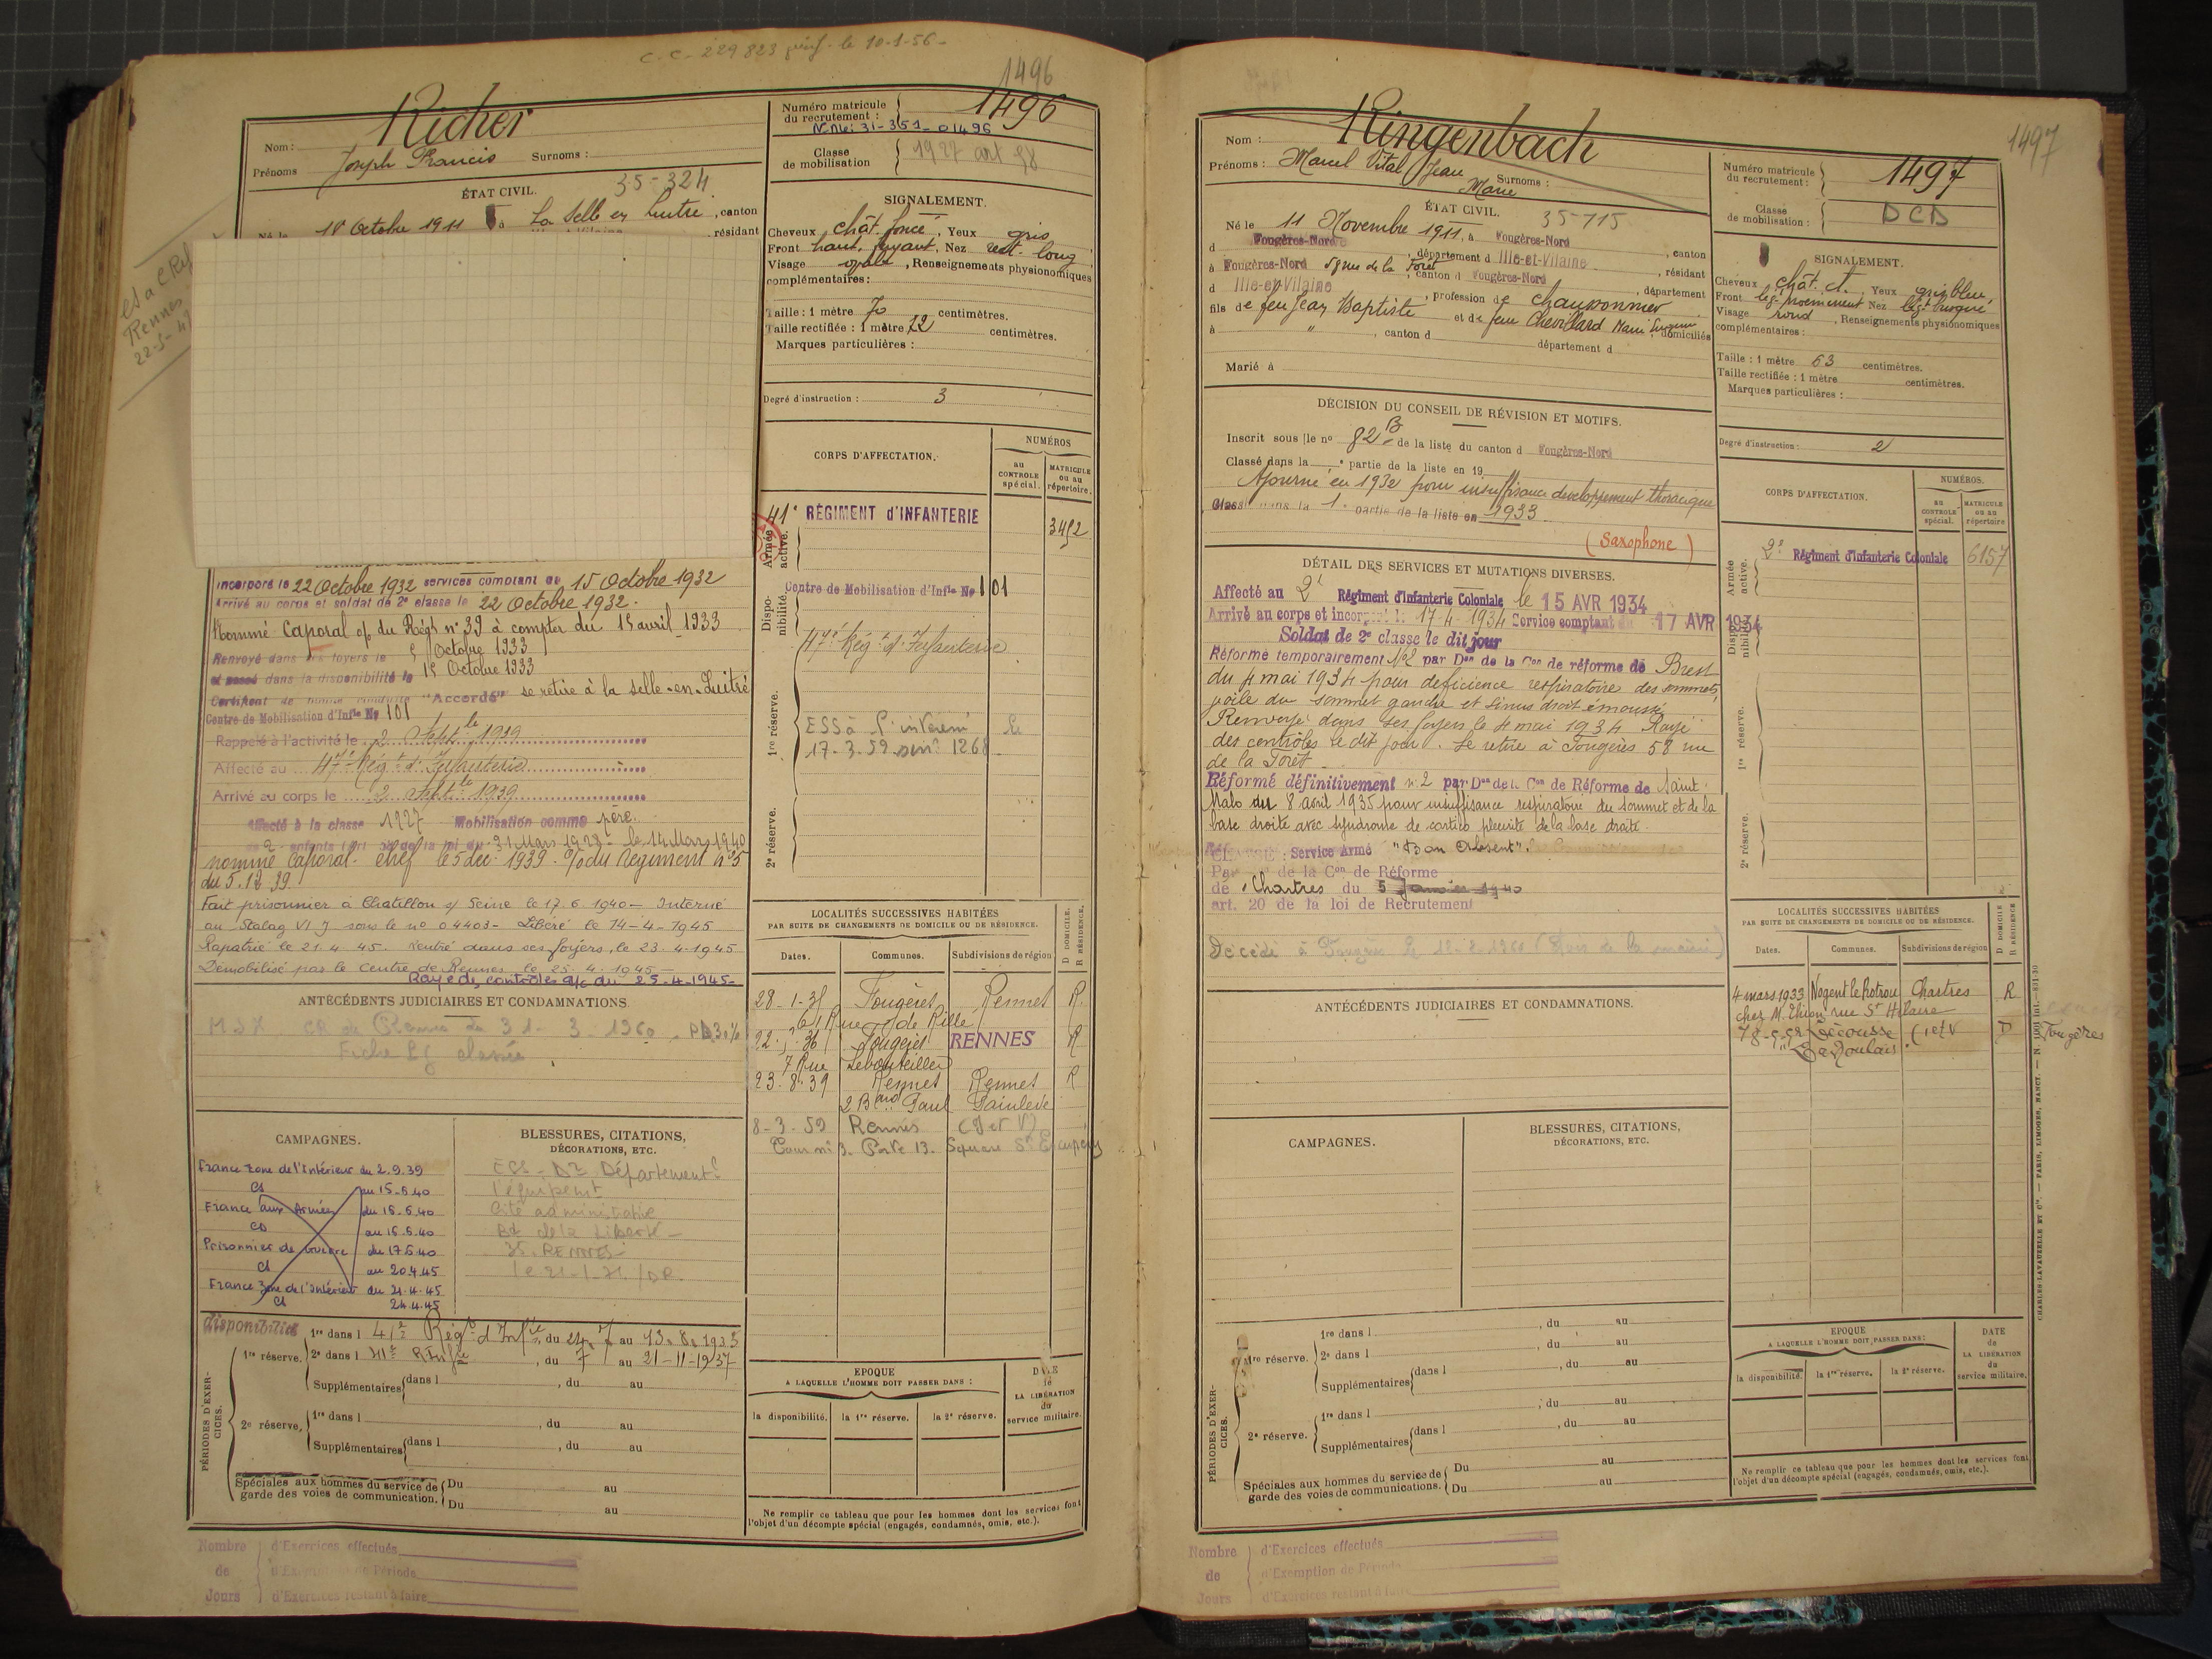 C.C. 229823 le 10-1-56-
1496
Nom : Richer
Prénoms Joseph Francis Surnoms :
Numéro matricule du recrutement : 1496
N. Nle : 31-351-01496
Classe de mobilisation 1927 art 58
ÉTAT CIVIL. 35-324
Né le 18 Octobre 1911 à La Selle en Luitré, canton
résidant
Rennes
22-5-
SIGNALEMENT.
Cheveux chât. foncé, Yeux gris
Front haut. fuyant, Nez rect. long
Visage ovale, Renseignements physionomiques
complémentaires :
Taille : 1 mètre 70 centimètres.
Taille rectifiée : 1 mètre 72 centimètres.
Marques particulières :
Degré d'instruction : 3
CORPS D'AFFECTATION.
NUMÉROS
au CONTROLE spécial.
MATRICULE ou au répertoire.
Armée active.
41e RÉGIMENT d'INFANTERIE 3452
Disponibilité.
Centre de Mobilisation d'Infie No 101
47e Régt d'Infanterie
1re réserve.
17-3-59 1268
2e réserve.
Incorporé le 22 Octobre 1932 services comptant du 15 Octobre 1932
Arrivé au corps et soldat de 2e classe le 22 Octobre 1932.
Nommé Caporal o/ du Régt n° 39 à compter du 15 avril 1933
Renvoyé dans ses foyers le Octobre 1933
et passé dans la disponibilité le 15 Octobre 1933
Certificat de bonne conduite "Accordé" se retire à la Selle-en-Luitré
Centre de Mobilisation d'Infie No 101
Rappelé à l'activité le 2 Septle 1939
Affecté au 47e Régt d'Infanterie
Arrivé au corps le 2 Septle 1939
Affecté à la classe 1927 Mobilisation comme père
de 2 enfants de la loi du 31 Mars 1928 - le 14 Mars 1940
nommé Caporal-chef le 5 déc. 1939. o/ du Régiment n° 5
du 5.12.39
Fait prisonnier à Chatillon s/ Seine le 17.6.1940 - Interné
au Stalag VI J sous le n° 04403 - Libéré le 14-4-1945
Rapatrié le 21.4.45. Rentré dans ses foyers le 23.4.1945
Démobilisé par le Centre de Rennes le 25.4.1945
Rayé des contrôles a/c du 25-4-1945-
ANTÉCÉDENTS JUDICIAIRES ET CONDAMNATIONS.
CR de Rennes du 31-3-1960
Fiche classée
LOCALITÉS SUCCESSIVES HABITÉES
PAR SUITE DE CHANGEMENTS DE DOMICILE OU DE RÉSIDENCE.
D DOMICILE. R RÉSIDENCE.
Dates. Communes. Subdivisions de région
28-1-35 Fougères Rennes R.
61 Rue de Rillé
22-5-36 Fougères RENNES R
7 Rue Lebouteiller
23.8.39 Rennes Rennes R
2 Bard Paul Painlevé
8-3-59 Rennes (I et V)
Porte 13. Square St Exupéry
CAMPAGNES.
France Zone de l'Intérieur du 2.9.39
CS au 15-5-40
France aux Armées du 16-5-40
CD au 16.6.40
Prisonnier de Guerre du 17.6.40
CS au 20.4.45
France Zone de l'Intérieur du 21.4.45
CS 24.4.45
BLESSURES, CITATIONS,
DÉCORATIONS, ETC.
l'équipemt
Cité administrative
Bd de la Liberté
35. RENNES
PÉRIODES D'EXERCICES.
disponibilité
1re réserve. 1re dans l 41e Régt d'Infie, du 24.7 au 13.8.1935
2e dans l 41e R Infie, du 7 au 21-11-1937
Supplémentaires dans l , du au
2e réserve. 1re dans l , du au
Supplémentaires dans l , du au
Spéciales aux hommes du service de garde des voies de communication. Du au
Du au
EPOQUE
A LAQUELLE L'HOMME DOIT PASSER DANS :
la disponibilité. la 1re réserve. la 2e réserve.
DATE de LA LIBÉRATION du service militaire.
Ne remplir ce tableau que pour les hommes dont les services font
l'objet d'un décompte spécial (engagés, condamnés, omis, etc.).
Nombre de Jours
d'Exercices effectués
d'Exemption de Période
d'Exercices restant à faire
1497
Nom : Ringenbach
Prénoms : Marcel Vital Jean Marie Surnoms :
Numéro matricule du recrutement : 1497
Classe de mobilisation : DCD
ÉTAT CIVIL. 35-715
Né le 11 Novembre 1911, à Fougères-Nord
d Fougères-Nord, département d Ille-et-Vilaine, canton
à Fougères-Nord 58 rue de la Forêt, canton d Fougères-Nord, résidant
d Ille-et-Vilaine, profession de chauponnier, département
fils de feu Jean Baptiste et de feue Chevillard Marie domiciliés
à " , canton d département d
Marié à
SIGNALEMENT.
Cheveux chât. cl. Yeux gris bleu,
Front lég. proéminent Nez légt busqué
Visage rond, Renseignements physionomiques
complémentaires :
Taille : 1 mètre 63 centimètres.
Taille rectifiée : 1 mètre centimètres.
Marques particulières :
Degré d'instruction : 2
DÉCISION DU CONSEIL DE RÉVISION ET MOTIFS.
Inscrit sous le n° 82 B de la liste du canton d Fougères-Nord
Classé dans la e partie de la liste en 19
Ajourné en 1932 pour insuffisance développement thoracique
Classé dans la 1e partie de la liste en 1933
(Saxophone)
CORPS D'AFFECTATION.
NUMÉROS.
au CONTROLE spécial.
MATRICULE ou au répertoire
Armée active.
2e Régiment d'Infanterie Coloniale 6157
Disponibilité.
1re réserve.
2e réserve.
DÉTAIL DES SERVICES ET MUTATIONS DIVERSES.
Affecté au 2e Régiment d'Infanterie Coloniale le 15 AVR 1934
Arrivé au corps et incorporé le 17-4 1934 Service comptant du 17 AVR 1934
Soldat de 2e classe le dit jour
Réformé temporairement N°2 par Don de la Con de réforme de Brest
du 4 mai 1934 pour déficience respiratoire des sommets,
voile du sommet gauche et sinus droit émoussé
Renvoyé dans ses foyers le 4 mai 1934 Rayé
des contrôles le dit jour. Se retire à Fougères 58 rue
de la Forêt
Réformé définitivement n°2 par Don de la Con de Réforme de Saint
Malo du 8 avril 1935 pour insuffisance respiratoire du sommet et de la
base droite avec syndrome de cortico pleurite de la base droite.
CLASSÉ : Service Armé "Bon Absent".
Par de la Con de Réforme
de Chartres du 5 Janvier 1940
art. 20 de la loi de Recrutement
Décédé à Fougères le 12-8-1960 (Avis de la mairie)
ANTÉCÉDENTS JUDICIAIRES ET CONDAMNATIONS.
LOCALITÉS SUCCESSIVES HABITÉES
PAR SUITE DE CHANGEMENTS DE DOMICILE OU DE RÉSIDENCE.
D DOMICILE R RÉSIDENCE
Dates. Communes. Subdivisions de région
4 mars 1933 Nogent le Rotrou Chartres R
chez M. Thieri rue St Hilaire
Lécousse (I et V D Fougères
CAMPAGNES.
BLESSURES, CITATIONS,
DÉCORATIONS, ETC.
PÉRIODES D'EXERCICES.
1re réserve. 1re dans l , du au
2e dans l , du au
Supplémentaires dans l , du au
2e réserve. 1re dans l , du au
Supplémentaires dans l , du au
Spéciales aux hommes du service de garde des voies de communications. Du au
Du au
EPOQUE
A LAQUELLE L'HOMME DOIT PASSER DANS :
la disponibilité. la 1re réserve. la 2e réserve.
DATE de LA LIBÉRATION du service militaire.
Ne remplir ce tableau que pour les hommes dont les services font
l'objet d'un décompte spécial (engagés, condamnés, omis, etc.).
CHARLES-LAVAUZELLE ET Cie. — PARIS, LIMOGES, NANCY.
Nombre de Jours
d'Exercices effectués
d'Exemption de Période
d'Exercices restant à faire